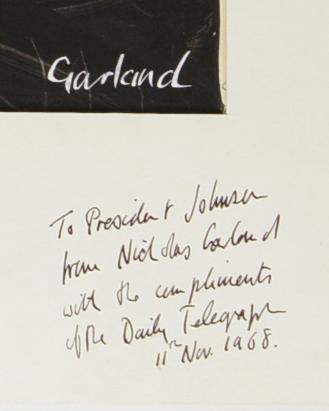 Garland
To President Johnson
from Nicholas Garland
with the compliments
of the Daily Telegraph
11th Nov. 1968.